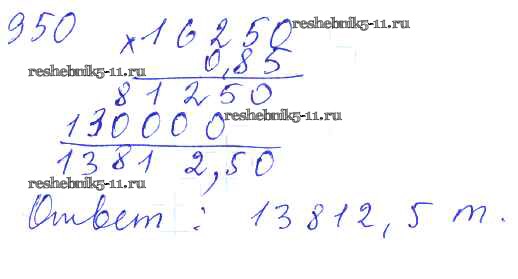 950
×16250
reshebnik5-11.ru
0,85
reshebnik5-11.ru
81250
130000
reshebnik5-11.ru
13812,50
reshebnik5-11.ru
Ответ: 13812,5 т.